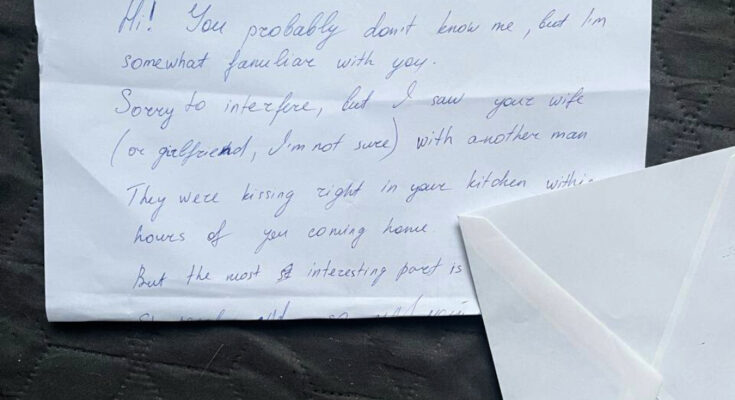 Hi! You probably don't know me, but I'm
somewhat familiar with you.
Sorry to interfere, but I saw your wife
(or girlfriend, I'm not sure) with another man
They were kissing right in your kitchen within
hours of you coming home.
But the most interesting part is